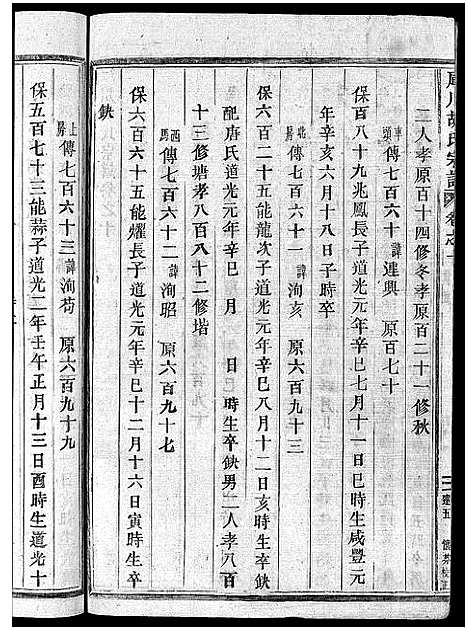 胡氏宗譜
二人孝原百十四修冬孝原百二十一修秋
車頭 傳七百六十 諱連興 原百七十
保百八十九兆鳳長子道光元年辛巳七月十一日巳時生咸豐元
年辛亥六月十八日子時卒
北房 傳七百六十一 諱洵亥 原六百九十三
保六百二十能龍次子道光元年辛巳八月十二日亥時生卒缺
配唐氏道光元年辛巳 月 日 時生卒缺男二人孝八百
十三修塘孝八百八十二修堦
西馬 傳七百六十二 諱洵昭 原六百九十七
保六百六十五能燿長子道光元年辛巳十二月十六日寅時生卒
缺
上房 傳七百六十三 諱洵苟 原六百九十九
保五百七十三能蒜子道光二年壬午正月十三日酉時生道光十